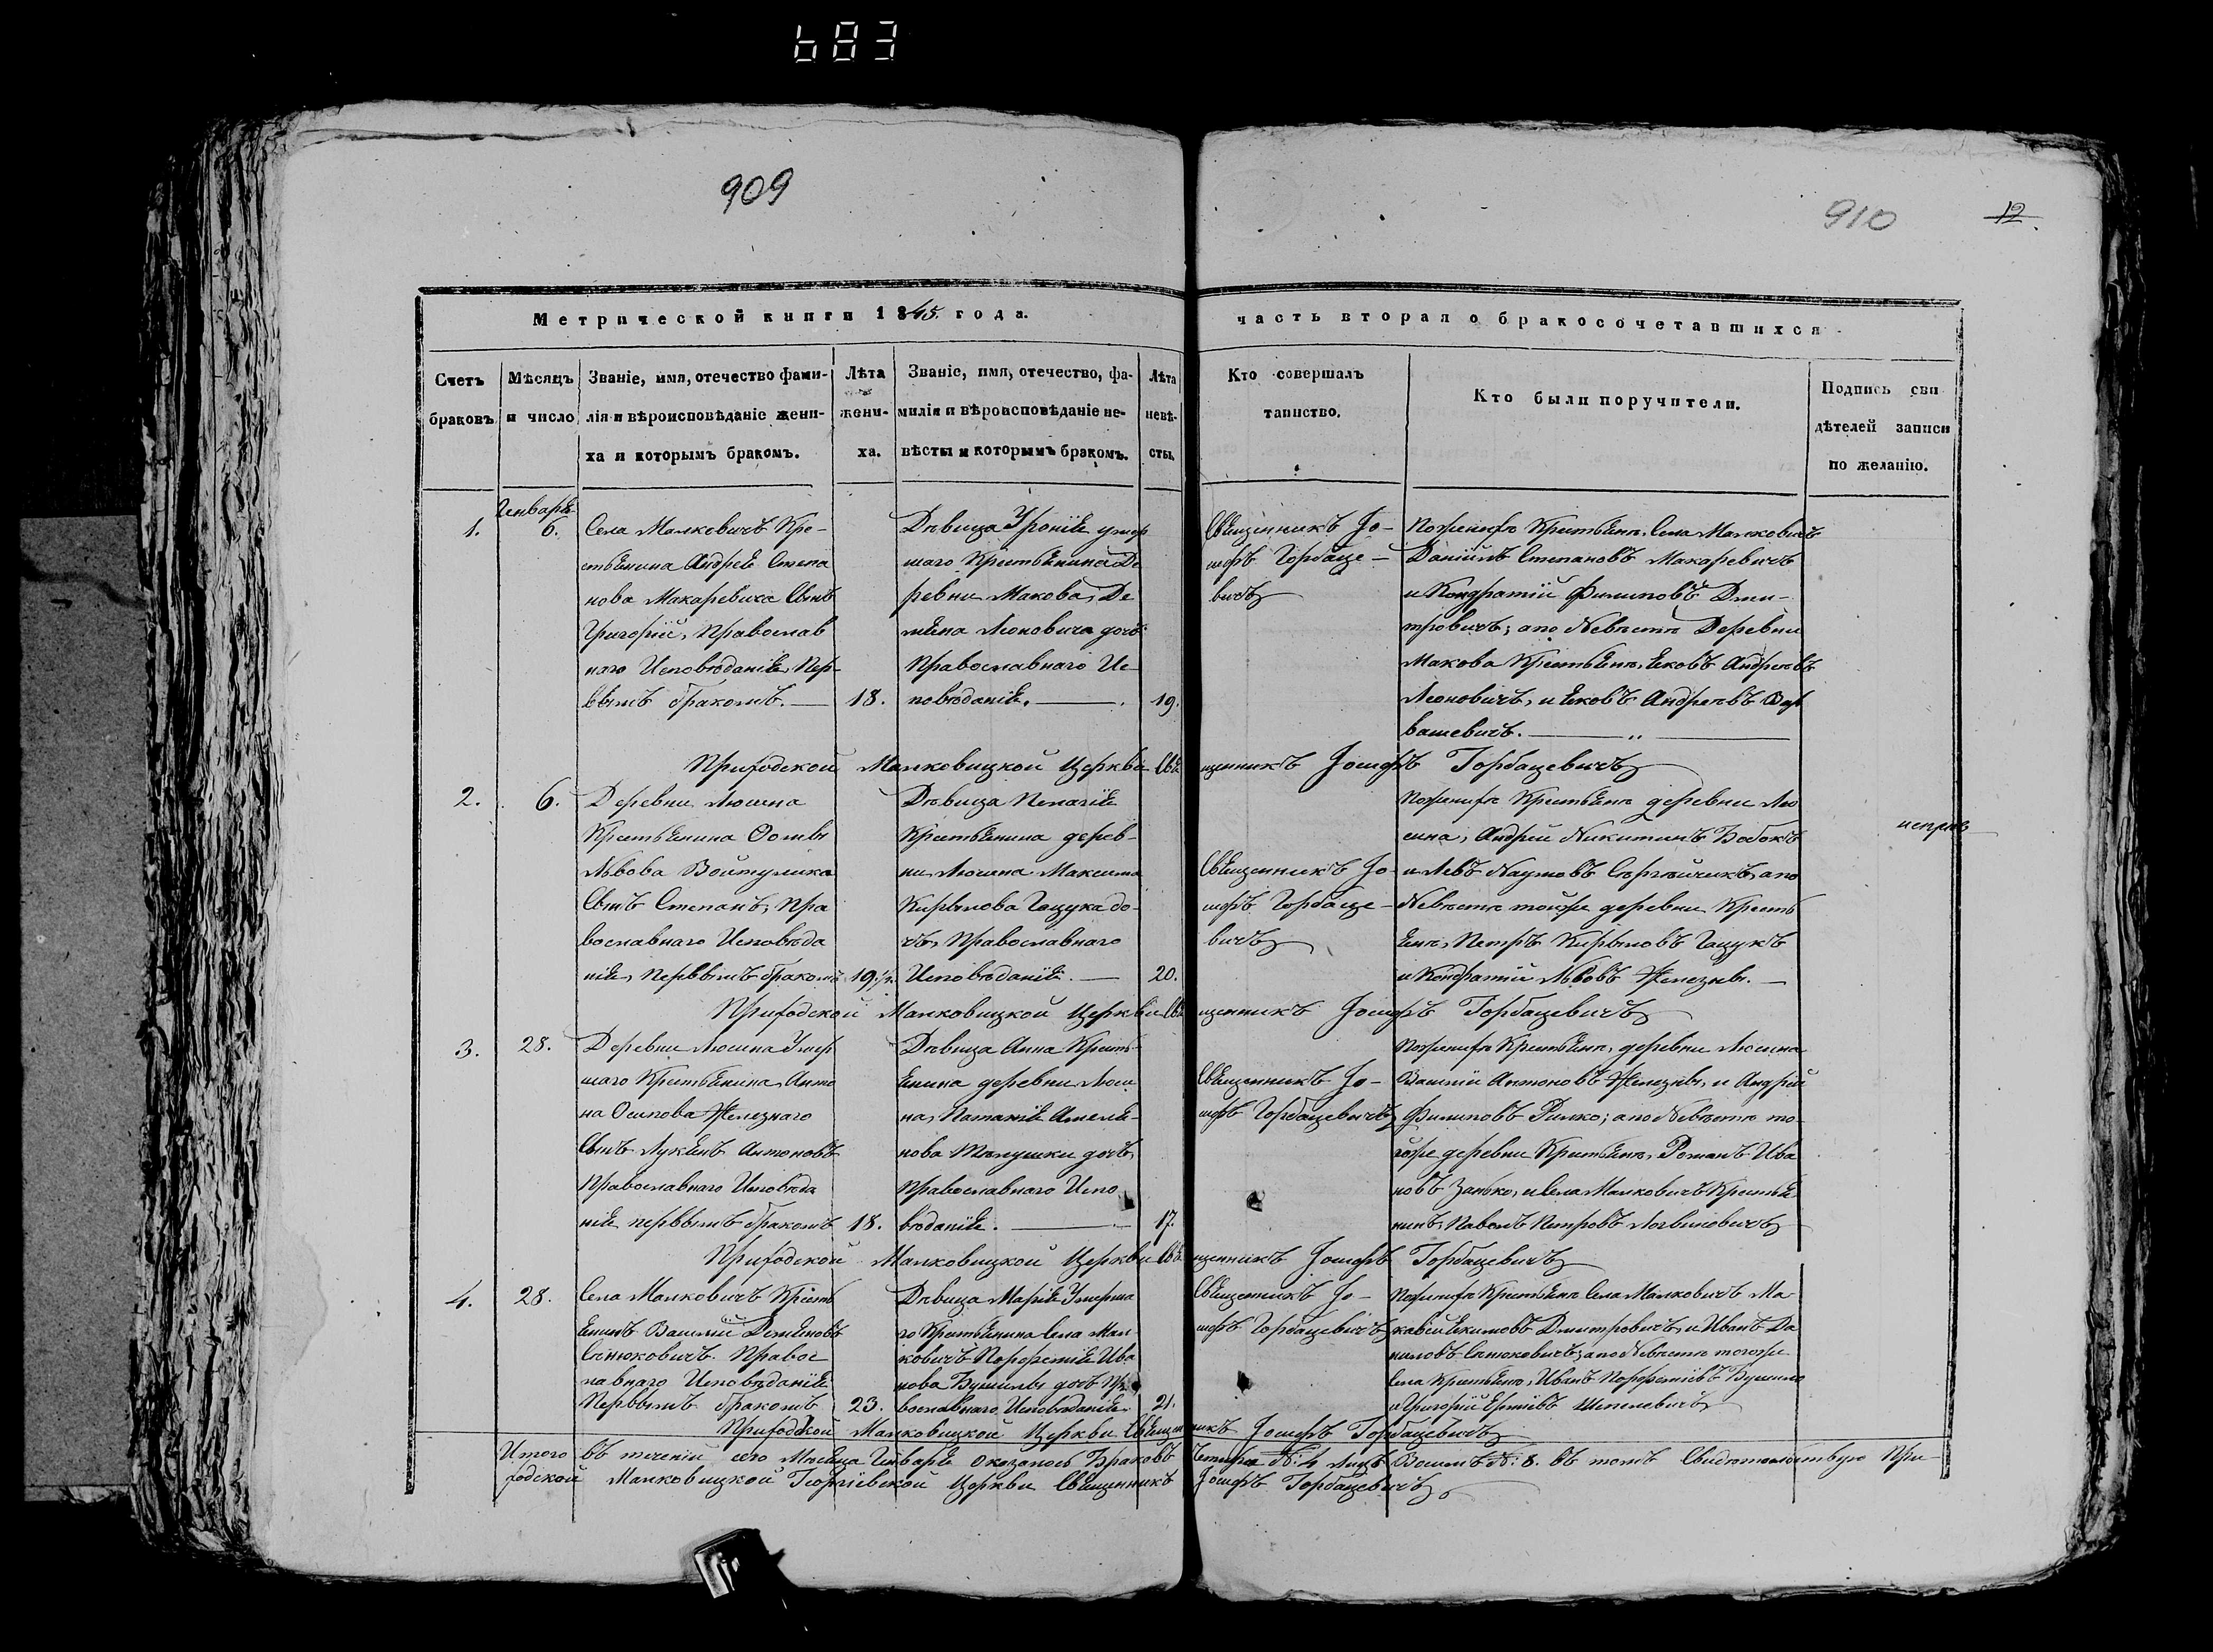 683
909
910
12
Метрической книги 1845. года.
часть вторая о бракосочетавшихся
Счетъ браковъ
Мѣсяцъ и число
Званіе, имя, отечество фами-
лія и вѣроисповѣданіе жени-
ха и которымъ бракомъ.
Лѣта
жени-
ха.
Званіе, имя, отечество, фа-
милія и вѣроисповѣданіе не-
вѣсты и которымъ бракомъ.
Лѣта
невѣ-
сты.
Кто совершалъ
таинство.
Кто были поручители.
Подпись сви
дѣтелей записи
по желанію.
1.
Генваря
6.
Села Малковичъ Кре-
стьянина Андрея Степа
нова Макаревича Сынъ
Григорій, Православ
наго Исповѣданія, Пер-
вымъ бракомъ.
18.
Дѣвица умер
шаго Крестьянина Де
ревни Макова, Де
мьяна Леоновича дочь
Православнаго Ис
повѣданія.
19.
Священникъ Іо-
сифъ Горбаце-
вичъ
По женихѣ Крестьяне, Села Малковичъ
Даніилъ Степановъ Макаревичъ
и Кондратій Филиповъ Дми-
тровичъ; а по Невѣстѣ Деревни
Макова Крестьяне, Яковъ Андреевъ
Леоновичъ, и Яковъ Андреевъ Вар
вашевичъ.
Приходской Малковицкой Церкви Священникъ Іосифъ Горбацевичъ
2.
6.
Деревни Люсина
Крестьянина Фомы
Львова Войтулика
Сынъ Степанъ, Пра
вославнаго Исповѣда
нія, Первымъ бракомъ
19.
Дѣвица Пелагія
Крестьянина дерев-
ни Люсина Максима
Кирылова Гацука до-
чь, Православнаго
Исповѣданія.
20.
Священникъ Іо-
сифъ Горбаце-
вичъ
По женихѣ Крестьяне деревни Лю
сина, Андрей Никитинъ Бобокъ
и Левъ Наумовъ а по
Невѣстѣ тойже деревни Кресть
яне, Петръ Кирыловъ Гацукъ
и Кондратій Львовъ Железны.
Приходской Малковицкой Церкви Священникъ Іосифъ Горбацевичъ
3.
28.
Деревни Люсина Умер
шаго Крестьянина Анто
на Осипова Железнаго
Сынъ Лукьянъ Антоновъ
Православнаго Исповѣда
нія первымъ бракомъ
18.
Дѣвица Анна Кресть-
янина деревни Люси
на, Емелья-
нова дочь,
Православнаго Испо
вѣданія.
17.
Священникъ Іо-
сифъ Горбацевичъ
По женихѣ Крестьяне, деревни Люсина
Василій Антоновъ Железны, и Андрей
Филиповъ а по Невѣстѣ то-
йже деревни Крестьяне, Романъ Ива
новъ Занько, и Села Малковичъ Крестья
нинъ, Павелъ Петровъ Логвиновичъ
Приходской Малковицкой Церкви Священникъ Іосифъ Горбацевичъ
4.
28.
Села Малковичъ Кресть
янинъ Василій Демьяновъ
Сенюковичъ. Правос
лавнаго Исповѣданія
Первымъ бракомъ
23.
Дѣвица Марія Умерша
го Крестьянина Села Мал
ковичъ Порфетія Ива
нова дочь Пра
вославнаго Исповѣданія
21.
Священникъ Іо-
сифъ Горбацевичъ
По женихѣ Крестьяне Села Малковичъ Ма
Екимовъ Дмитровичъ, и Иванъ Да
ниловъ Сенюковичъ; а по Невѣстѣ тогоже
Села Крестьяне, Иванъ
и Григорій Шепелевичъ
Приходской Малковицкой Церкви Священникъ Іосифъ Горбацевичъ
Итого въ теченіи сего Мѣсяца Генваря оказалось Браковъ Четыре №: 4 лицъ Восемь №: 8. въ томъ Свидетельствую При-
ходской Малковицкой Георгіевской Церкви Священникъ Іосифъ Горбацевичъ